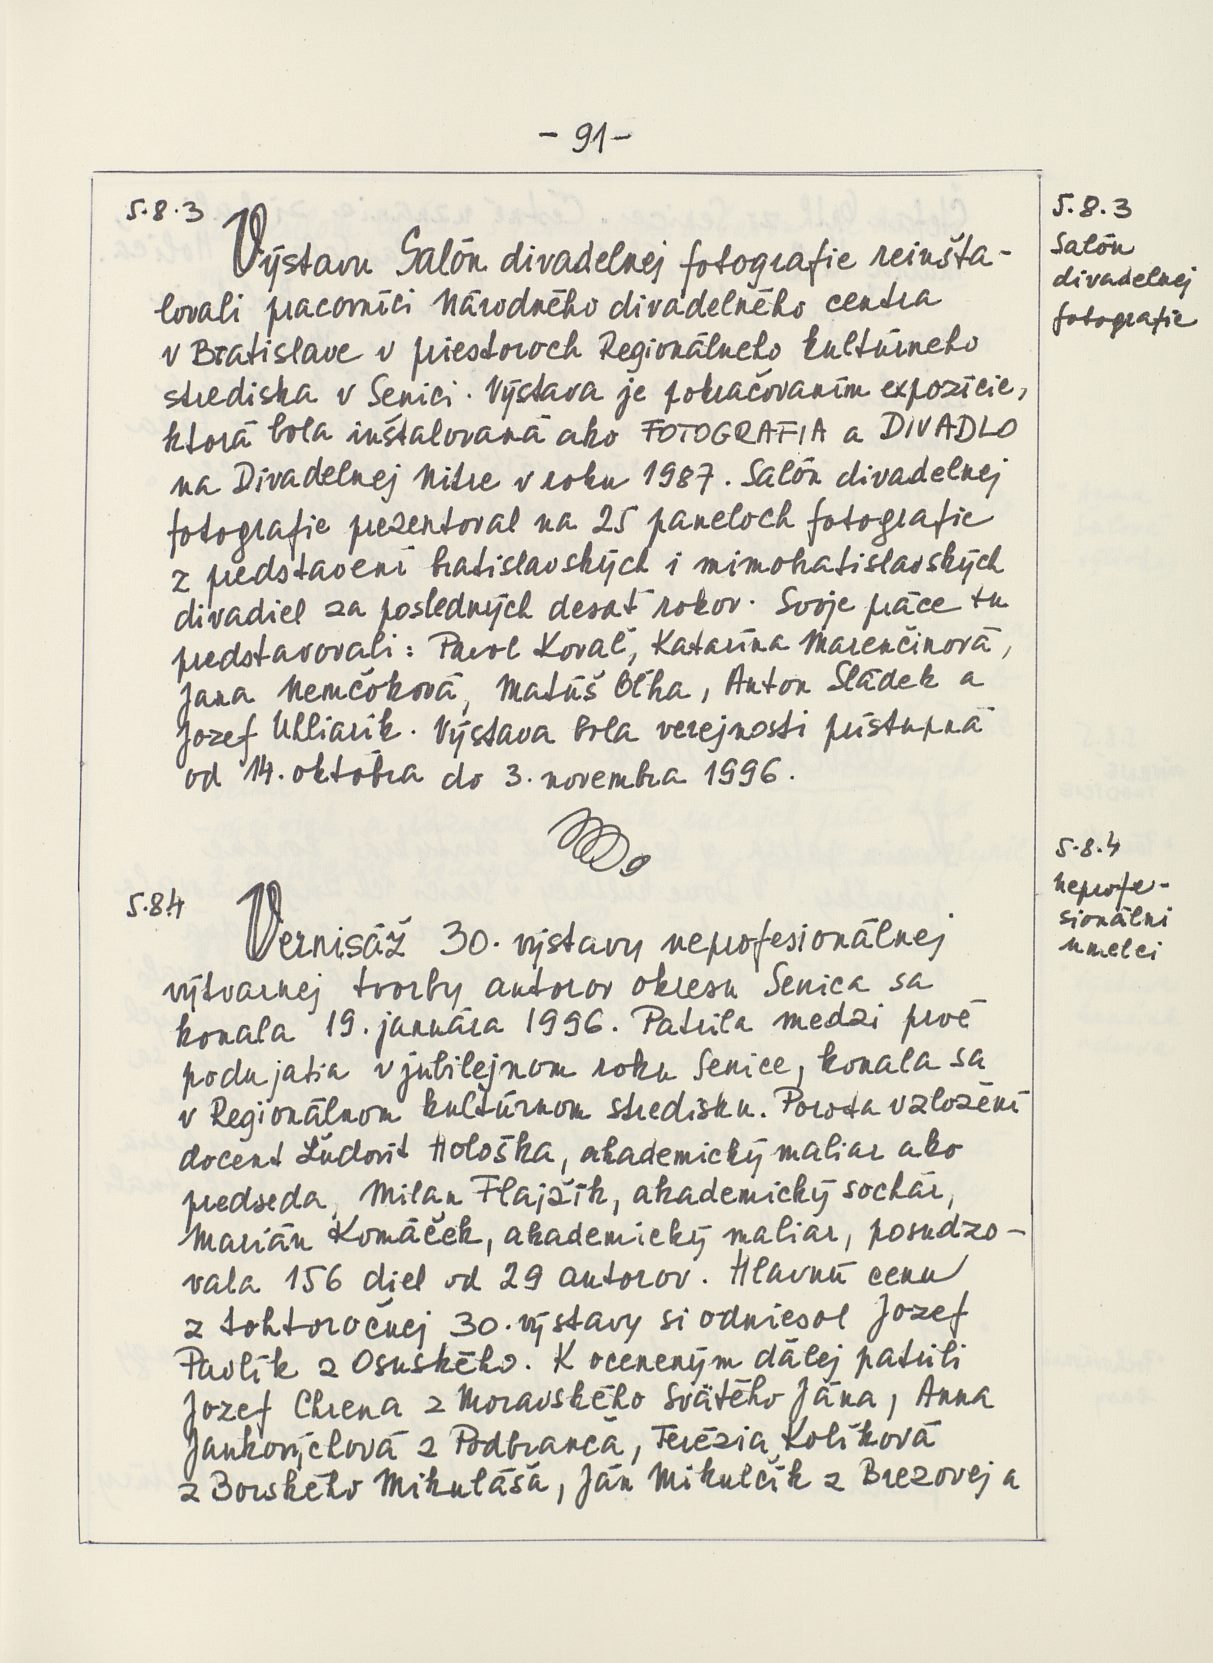 - 91 -
5.8.3
Výstavu Salón divadelnej fotografie reinšta-
lovali pracovníci Národného divadelného centra
v Bratislave v priestoroch Regionálneho kultúrneho
strediska v Senici. Výstava je pokračovaním expozície,
ktorá bola inštalovaná ako FOTOGRAFIA a DIVADLO
na Divadelnej Nitre v roku 1987. Salón divadelnej
fotografie prezentoval na 25 paneloch fotografie
z predstavení bratislavských i mimobratislavských
divadiel za posledných desať rokov. Svoje práce tu
predstavovali: Pavol Kovač, Katarína Marenčinová,
Jana Nemčoková, Matúš Oľha, Anton Sládek a
Jozef Uhliarik. Výstava bola verejnosti prístupná
od 14. októbra do 3. novembra 1996.
5.8.3
Salón
divadelnej
fotografie
5.8.4
Vernisáž 30. výstavy neprofesionálnej
výtvarnej tvorby autorov okresu Senica sa
konala 19. januára 1996. Patrila medzi prvé
podujatia v jubilejnom roku Senice, konala sa
v Regionálnom kultúrnom stredisku. Porota v zložení
docent Ľudovít Hološka, akademický maliar ako
predseda, Milan Flajžík, akademický sochár,
Marián Komáček, akademický maliar, posudzo-
vala 156 diel od 29 autorov. Hlavnú cenu
z tohtoročnej 30. výstavy si odniesol Jozef
Pavlík z Osuského. K oceneným ďalej patrili
Jozef Chrena z Moravského Svätého Jána, Anna
Jankovýchová z Podbranča, Terézia Kolíková
z Borského Mikuláša, Ján Mikulčík z Brezovej a
5.8.4
neprofe-
sionálni
umelci